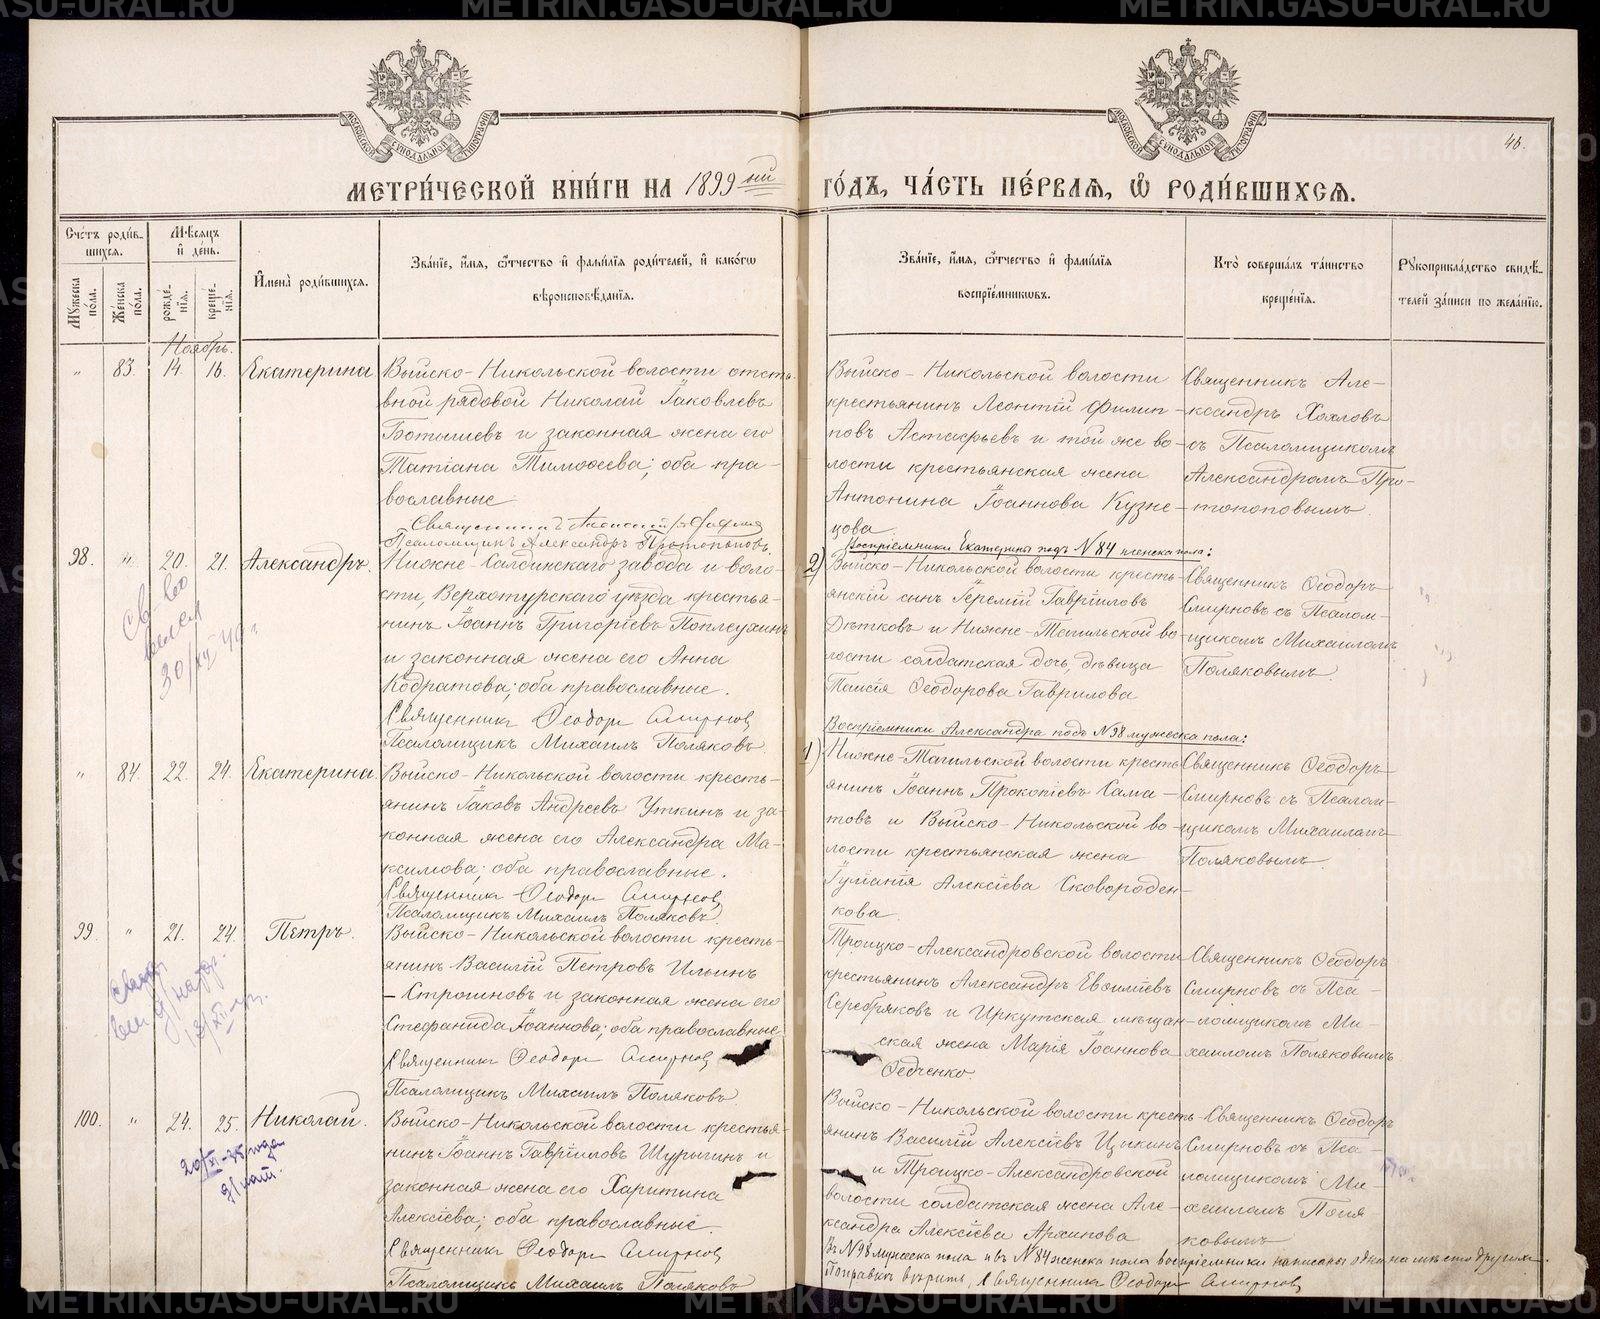 METRIKI.GASU-URAL.RU
МОСКОВСКОЙ СѴНОДАЛЬНОЙ ТИПОГРАФІИ
МОСКОВСКОЙ СѴНОДАЛЬНОЙ ТИПОГРАФІИ
46.
МЕТРИ́ЧЕСКОЙ КНИ́ГИ НА 1899ый ГО́ДЪ, ЧА́СТЬ ПЕ́РВАЯ, Ѡ РОДИ́ВШИХСЯ.
Сче́тъ роди́в-
шихся.
Му́жеска по́ла.
Же́нска по́ла.
Мѣ́сяцъ и де́нь.
рожде́нїя.
креще́нїя.
Имена̀ роди́вшихся.
Зва́нїе, и́мя, ѻ҆́тчество и фами́лїя роди́телей, и како́гѡ
вѣроисповѣ́данїя.
Зва́нїе, и́мя, ѻ҆́тчество и фами́лїя
воспрїе́мниковъ.
Кто̀ соверша́лъ та́инство
креще́нїя.
Рукоприкла́дство свидѣ́-
телей за́писи по жела́нїю.
Ноябрь.
" 83. 14. 16. Екатерина
Выйско-Никольской волости отста-
вной рядовой Николай Іаковлевъ
Ботышевъ и законная жена его
Татіана Тимоѳеева; оба пра-
вославные
Священникъ
Псаломщикъ Александръ Протопоповъ.
Выйско-Никольской волости
крестьянинъ Леонтій Филип-
повъ Астафьевъ и той же во-
лости крестьянская жена
Антонина Іоаннова Кузне-
цова
Священникъ Але-
ксандръ Хохловъ
съ Псаломщикомъ
Александромъ Про-
топоповымъ.
98. " 20. 21. Александръ.
Нижне-Салдинскаго завода и воло-
сти, Верхотурскаго уѣзда крестья-
нинъ Іоаннъ Григоріевъ Поплеухинъ
и законная жена его Анна
Кодратова; оба православные.
Священникъ Ѳеодоръ Смирновъ
Псаломщикъ Михаилъ Поляковъ
Воспріемники Екатерины подъ №84 женска пола:
2) Выйско-Никольской волости кресть-
янскій сынъ Іеремій Гавріиловъ
Дѣтковъ и Нижне-Тагильской во-
лости солдатская дочь, дѣвица
Таисія Ѳеодорова Гаврилова
Священникъ Ѳеодоръ
Смирновъ съ Псалом-
щикомъ Михаиломъ
Поляковымъ.
30/XII 40 г
" 84. 22. 24. Екатерина
Выйско-Никольской волости кресть-
янинъ Іаковъ Андреевъ Уткинъ и за-
конная жена его Александра Ма-
ксимова; оба православные.
Священникъ Ѳеодоръ Смирновъ
Псаломщикъ Михаилъ Поляковъ.
Воспріемники Александра подъ №98 мужеска пола:
1) Нижне-Тагильской волости кресть-
янинъ Іоаннъ Прокопіевъ Сама-
товъ и Выйско-Никольской во-
лости крестьянская жена
Іуліанія Алексіева Сковороден-
кова.
Священникъ Ѳеодоръ
Смирновъ съ Псалом-
щикомъ Михаиломъ
Поляковымъ
99. " 21. 24. Петръ.
Выйско-Никольской волости кресть-
янинъ Василій Петровъ Ильинъ
- Строгановъ и законная жена его
Стефанида Іоаннова; оба православные
Священникъ Ѳеодоръ Смирновъ
Псаломщикъ Михаилъ Поляковъ
Троицко-Александровской волости
крестьянинъ Александръ Евѳиміевъ
Серебряковъ и Иркутская мѣщан-
ская жена Марія Іоаннова
Федченко.
Священникъ Ѳеодоръ
Смирновъ съ Пса-
ломщикомъ Ми-
хаиломъ Поляковымъ
100. " 24. 25. Николай.
Выйско-Никольской волости крестья-
нинъ Іоаннъ Гавріиловъ Шурыгинъ и
законная жена его Харитина
Алексіева; оба православные
Священникъ Ѳеодоръ Смирновъ
Псаломщикъ Михаилъ Поляковъ
Выйско-Никольской волости кресть-
янинъ Василій Алексіевъ Цыкинъ
и Троицко-Александровской
волости солдатская жена Але-
ксандра Алексіева Архипова
Священникъ Ѳеодоръ
Смирновъ съ Пса-
ломщикомъ Ми-
хаиломъ Поля-
ковымъ
Въ №98 мужеска пола и въ №84 женска пола воспріемники написаны одни на мѣсто другихъ.
Поправкѣ вѣрить, Священникъ Ѳеодоръ Смирновъ